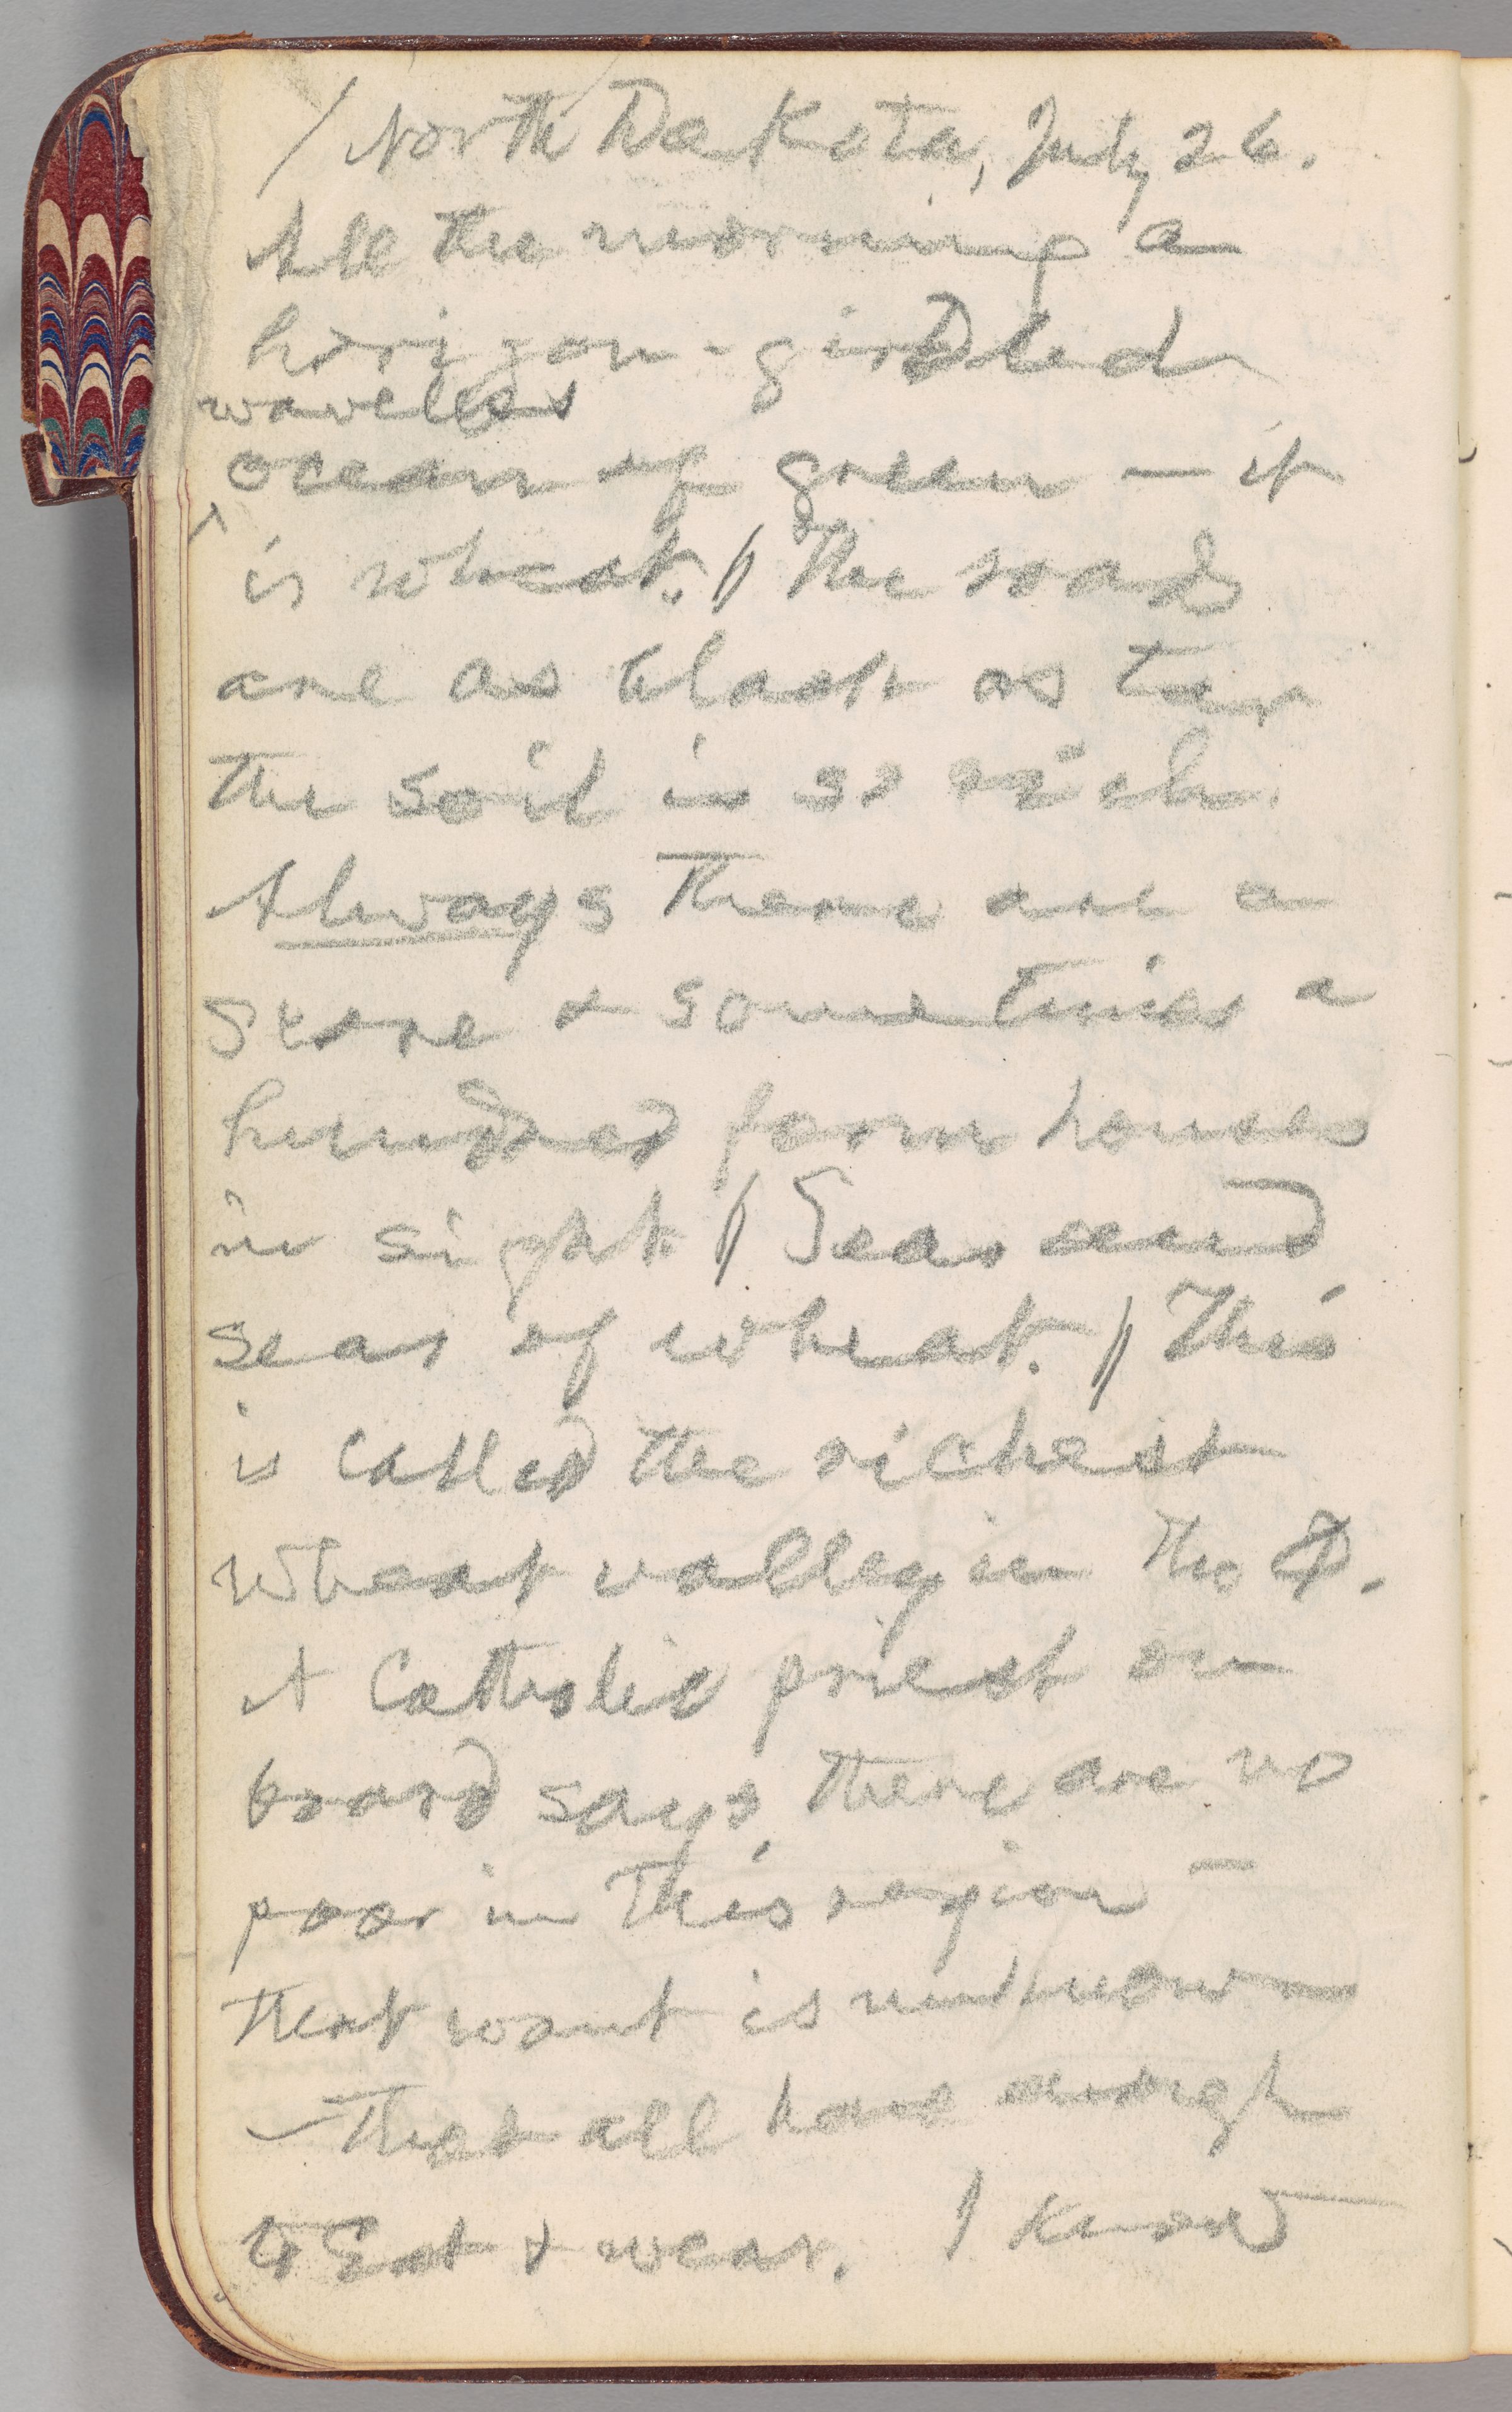 / North Dakota, July 26.
All the morning a
horizon-girdled
waveless
ocean of green — it
^
is wheat. // The roads
are as black as tar
the soil is so rich.
Always there are a
score & sometimes a
hundred farm houses
in sight. // Seas and
seas of wheat. // This
is called the richest
wheat valley in the
A Catholic priest on
board says there are no
poor in this region —
that want is unknown
— that all have enough
to eat & wear. I know